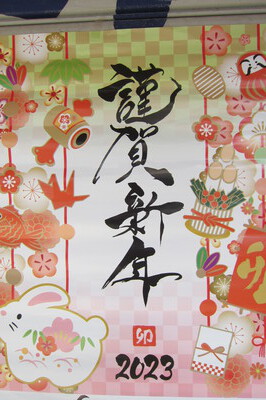 謹賀新年
卯
2023